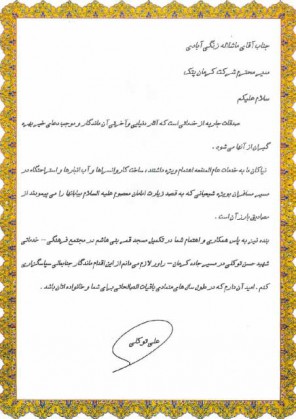 جناب آقای ماشااله زنگی آبادی
مدیر محترم شرکت کرمان پتک
سلام علیکم
صدقات جاریه از خدماتی است که آثار دنیایی و آخرتی آن ماندگار و موجب دعای خیر بهره
گیران از آنها می شود.
نیاکان ما به خدمات عام المنفعه اهتمام ویژه داشتند، ساخت کاروانسراها و آب انبارها و استراحتگاه در
مسیر مسافران بویژه شیعیانی که به قصد زیارت امامان معصوم علیه السلام بیابانها را می پیمودند از
مصادیق بارز آن است.
بنده نیز به پاس همکاری و اهتمام شما در تکمیل مسجد قمر بنی هاشم در مجتمع فرهنگی - خدماتی
شهید حسن توکلی در مسیر جاده کرمان - راور لازم می دانم از این اقدام ماندگار جنابعالی سپاسگزاری
کنم. امید آن دارم که در طول سال های متمادی باقیات الصالحاتی برای شما و خانواده تان باشد.
علی توکلی